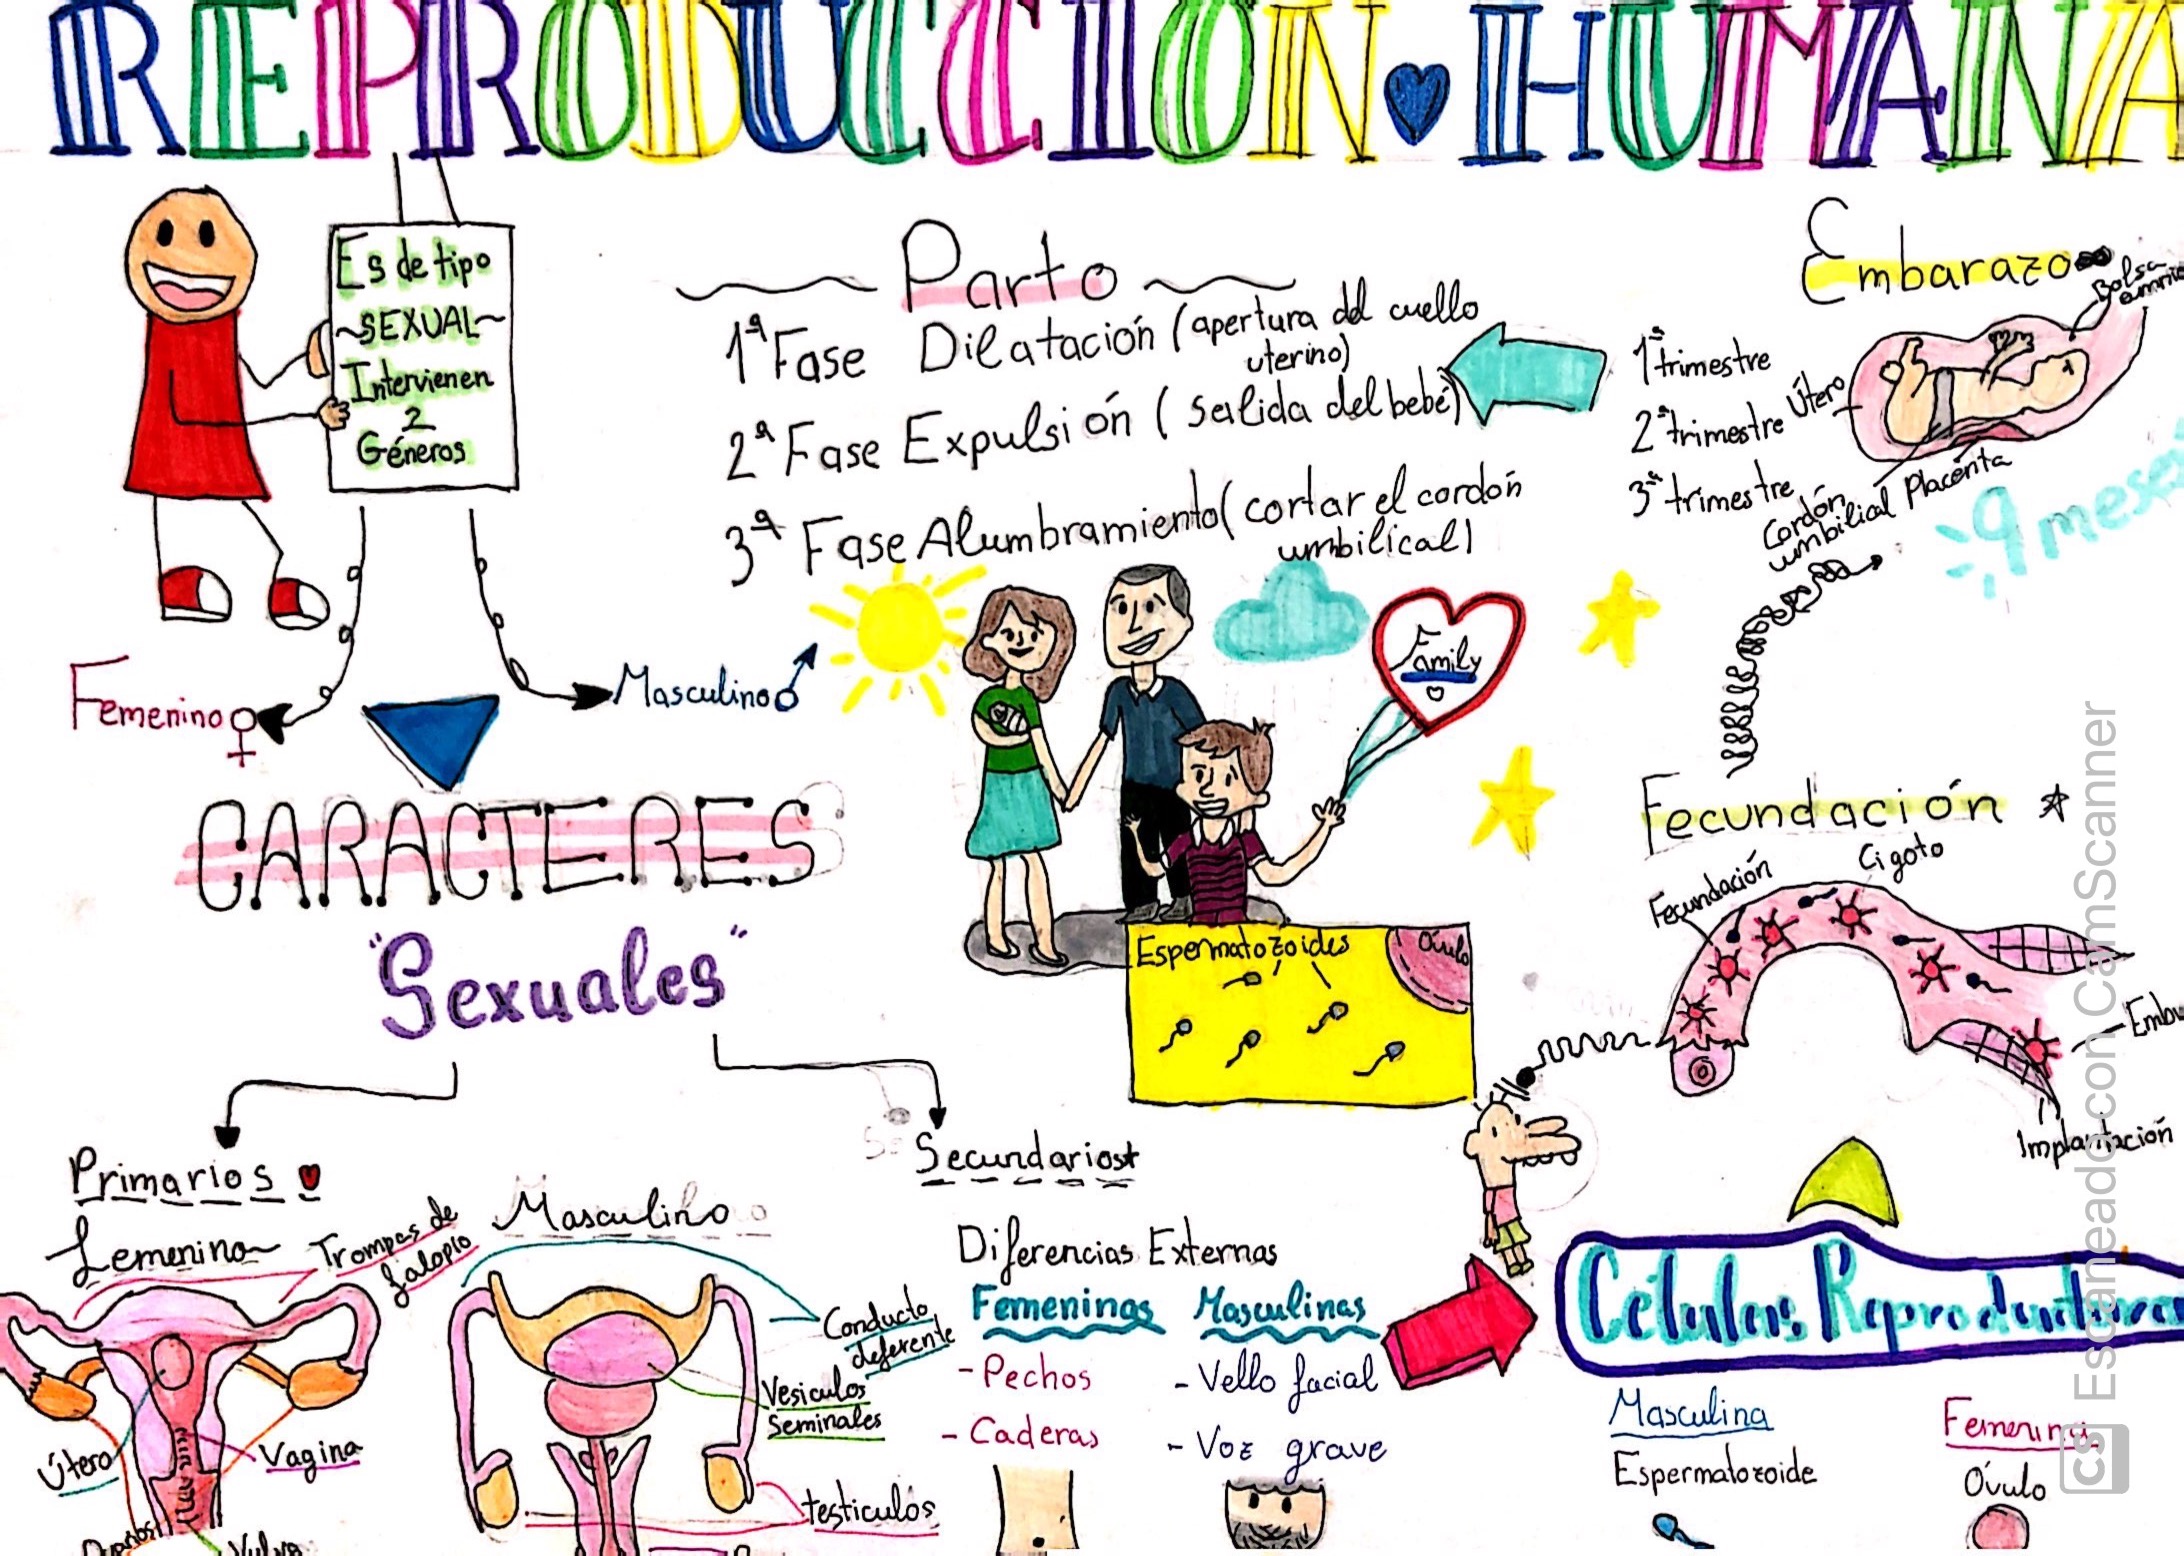 REPRODUCCION HUMANA
Es de tipo
~SEXUAL~
Intervienen
2
Géneros
Femenino
Masculino
Parto
1ª Fase Dilatación (apertura del cuello
uterino)
2ª Fase Expulsión (salida del bebé)
3ª Fase Alumbramiento (cortar el cordón
umbilical)
Embarazo
Bolsa
1er trimestre
2º trimestre
3er trimestre
Útero
Cordón
umbilical
Placenta
9 meses
Family
CARACTERES
"Sexuales"
Espermatozoides
Óvulo
Fecundación
Fecundación
Cigoto
Implantación
Primarios
Femenino
Trompas de
falopio
Útero
Vagina
Vulva
Masculino
Conducto
deferente
Vesiculos
Seminales
testiculos
Secundarios
Diferencias Externas
Femeninas
- Pechos
- Caderas
Masculinas
- Vello facial
- Voz grave
Células Reproductora
Masculina
Espermatozoide
Femenina
Óvulo
CS Escaneado con CamScanner